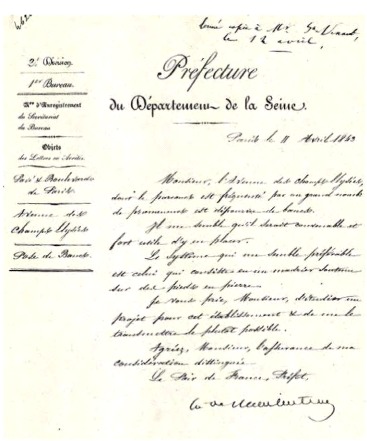 462
donné copie à Mr.
le 12 avril.
2e. Division.
1er. Bureau.
Nos. d'Enregistrement
du Secrétariat
du Bureau
Objets
des Lettres ou Arrêtés.
Préfecture
du Département de la Seine.
Paris le 11 Avril 1843
Pavé & Boulevards
de Paris.
Avenue des
Champs Elysées
Pose de Bancs.
Monsieur, l'avenue des Champs Elysées,
dont le parcours est fréquenté par un grand nombre
de promeneurs est dépourvue de bancs.
Il me semble qu'il serait convenable et
fort utile d'y en placer.
Le système qui me semble préférable
est celui qui consiste en un madrier soutenu
sur des pieds en pierre.
Je vous prie, Monsieur, d'étudier un
projet pour cet établissement & de me le
transmettre le plutôt possible.
Agréez, Monsieur, l'assurance de ma
considération distinguée.
Le Pair de France, Préfet,